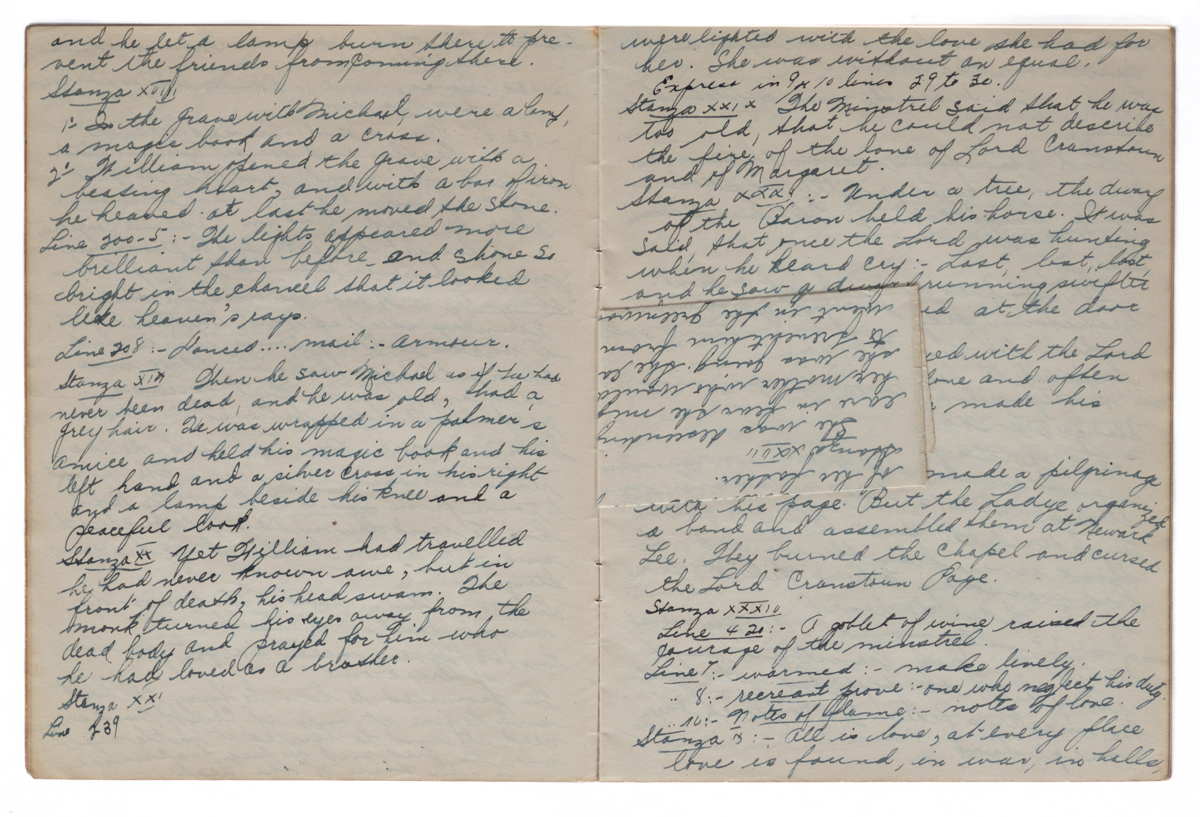 and he let a lamp burn there to pre-
vent the friends from coming there.
Stanza XVIII
1:- In the grave with Michael, were a lamp,
a magic book and a cross.
2:- William opened the grave with a
beasing heart, and with a bar of iron
he heaved. at last he moved the stone.
Line 200-5:- The lights appeared more
brilliant than before and shone so
bright in the chancel that it looked
like heaven's rays.
Line 208:- Danced.... mail:- armour.
Stanza XIX Then he saw Michael as if he had
never been dead, and he was old, had a
grey hair. He was wrapped in a palmer's
amice and held his magic book and his
left hand and a silver cross in his right
and a lamp beside his knee and a
peaceful look.
Stanza XX Yet William had travelled
he had never known awe, but in
front of death, his head swam. The
monk turned his eyes away from the
dead body and prayed for him who
he had loved as a brother.
Stanza XXI
Line 239
were lighted with the love she had for
her. She was without an equal.
Express in 9 x 10 lines 29 to 30.
Stanza XXIX The Minstrel said that he was
too old, that he could not describe
the fire, of the love of Lord Cranstoun
and of Margaret.
Stanza XXX:- Under a tree, the dwarf
of the Baron held his horse. It was
said, that once the Lord was hunting
when he heard cry:- Lost, lost, lost,
and he saw a dwarf running swiftly
at the door
with the Lord
and often
made his
of her father.
Stanza XXVII
She was descending
care in fear she
her mother who would
she was going. She
to
went in the greenwood
made a pilgrimage
with his page. But the Ladye organized
a band and assembled them at Newark
Lee. They burned the Chapel and cursed
the Lord Cranstoun Page.
Stanza
Line 421:- A goblet of wine raised the
courage of the minstrel.
Line 7:- warmed:- make lively.
.. 8:- recreant prove:- one who neglect his duty.
.. 10:- Notes of flame:- notes of love.
Stanza :- All is love, at every place
love is found, in war, in halls,